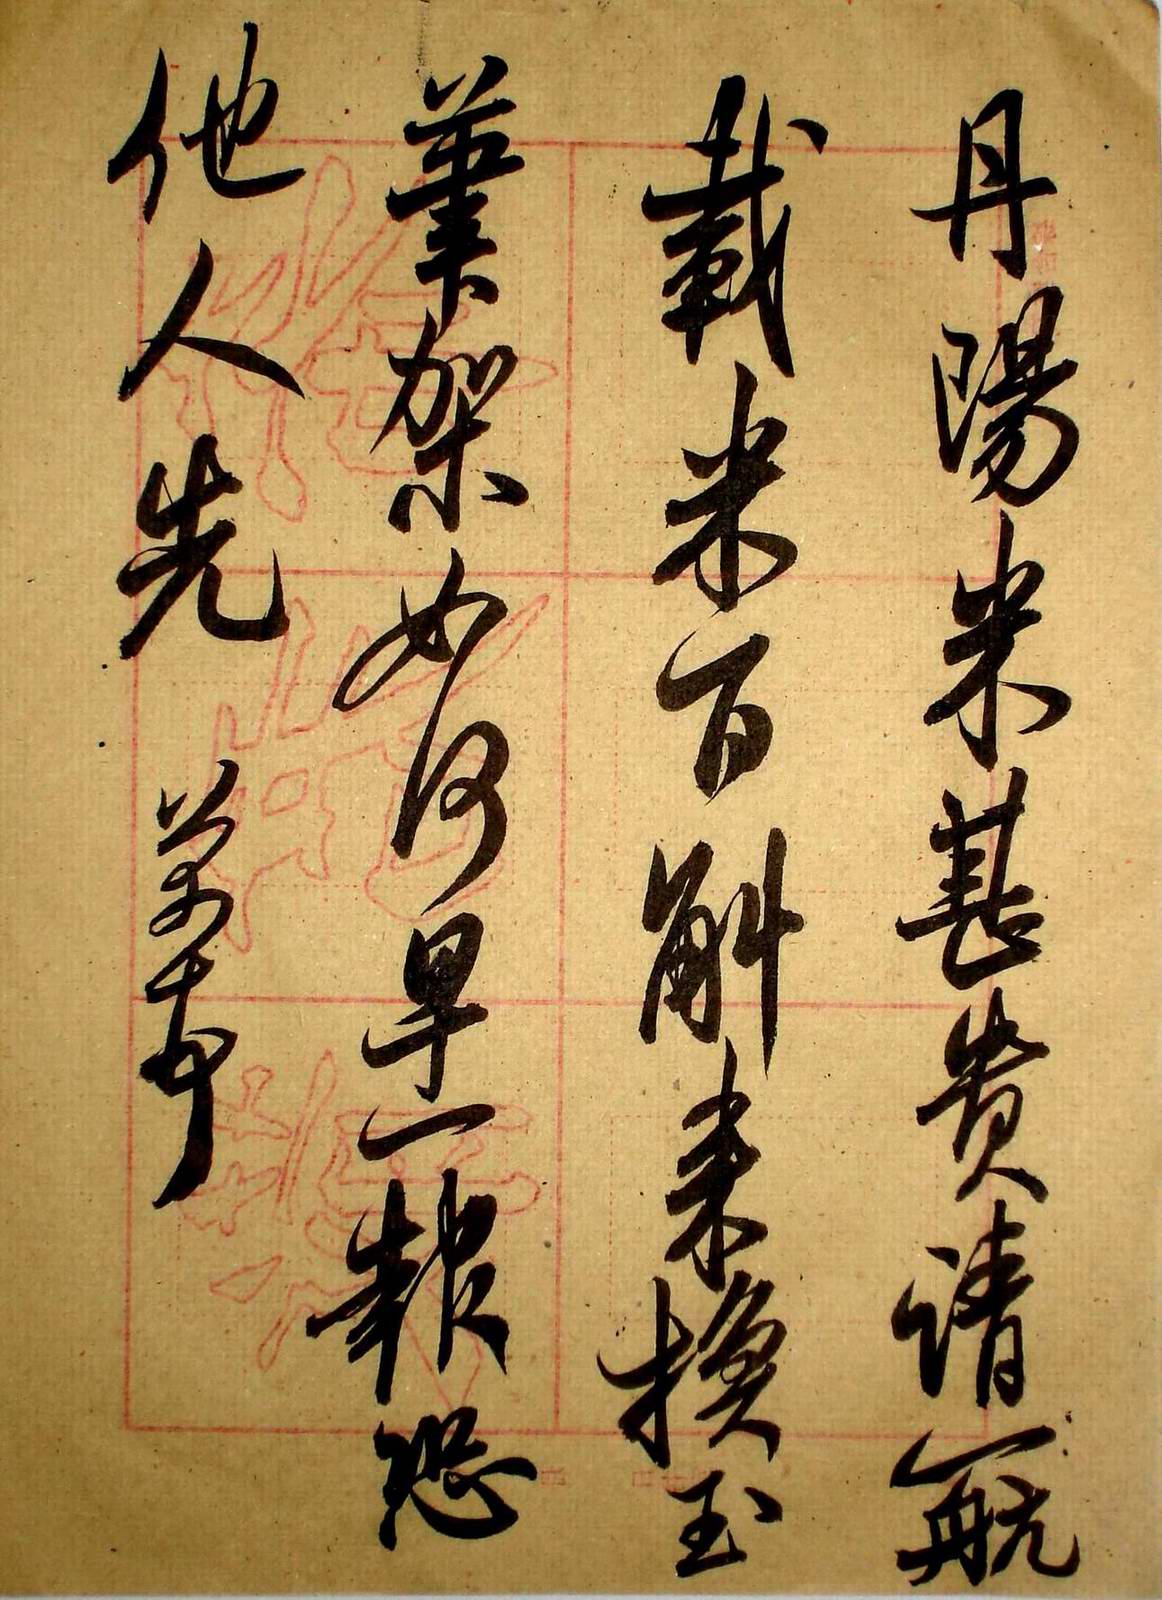 丹陽米甚貴請一航
載米百斛来換玉
筆架如何早一報恐
他人先 芾頓首